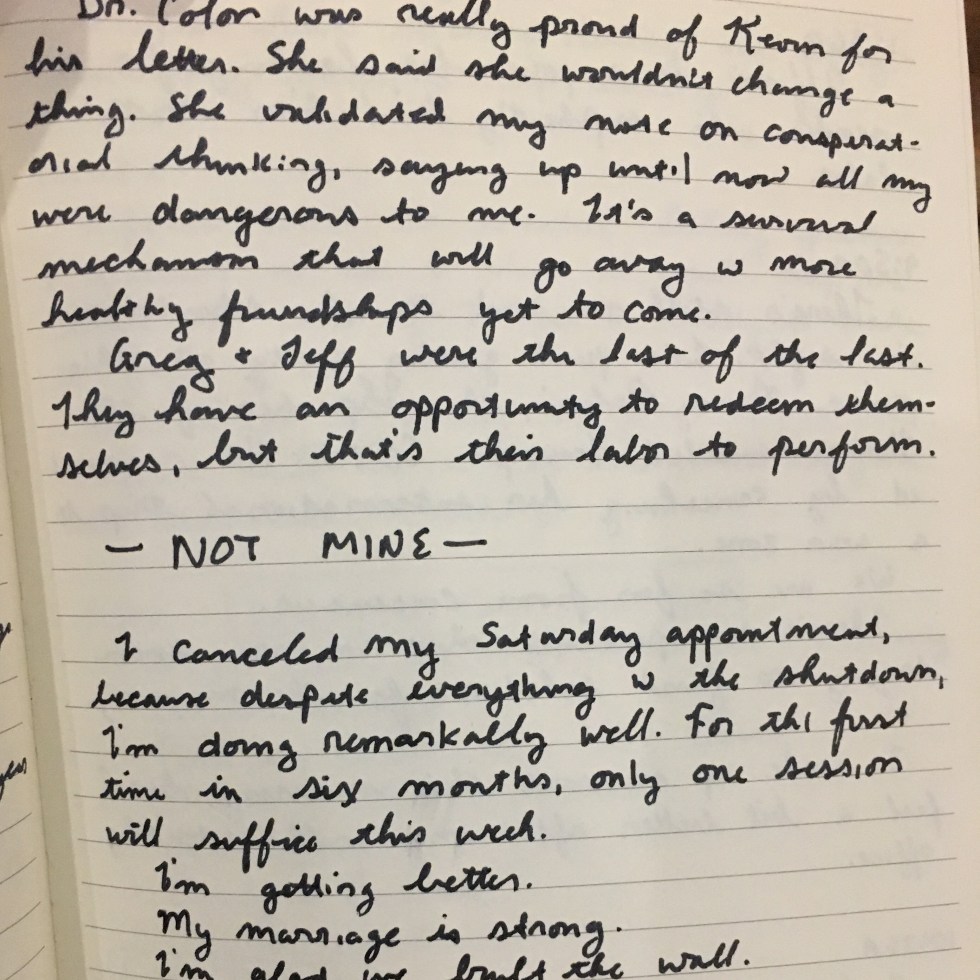 Dr. Colon was really proud of Kevin for
his letter. She said she wouldn't change a
thing. She validated my note on conspirat-
orial thinking, saying up until now all my
were dangerous to me. It's a survival
mechanism that will go away w more
healthy friendships yet to come.
Greg + Jeff were the last of the last.
They have an opportunity to redeem them-
selves, but that's their labor to perform.
— NOT MINE —
I canceled my Saturday appointment,
because despite everything w the shutdown,
I'm doing remarkably well. For the first
time in six months, only one session
will suffice this week.
I'm getting better.
My marriage is strong.
I'm glad we built the wall.